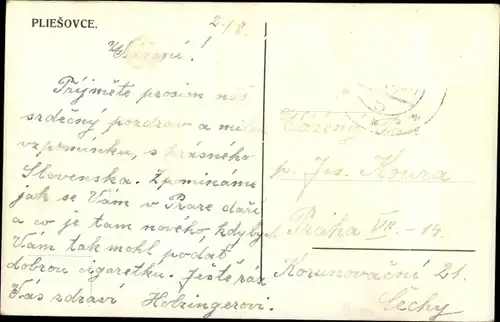 PLIEŠOVCE.
2./8.
Vážení!
Přijměte prosím náš
srdečný pozdrav a milou
vzpomínku, s krásného
Slovenska. Zpomínáme
jak se Vám v Praze daří
a co je tam nového, kdybych
Vám tak mohl podat
dobrou cigaretku. Ještě ráz
Vás zdraví Holzingerovi.
Vážený Pan
p. Jos. Koura
Praha VII. - 14.
Korunovační 21.
Čechy